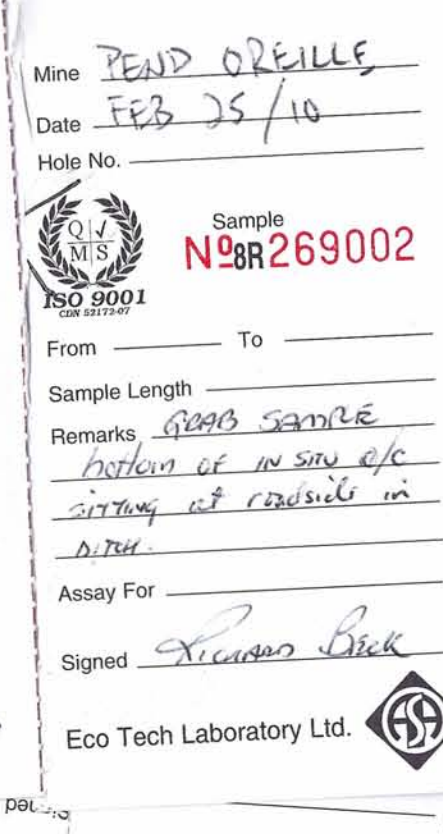 Mine PEND OREILLE
Date FEB 25/10
Hole No.
Q ✓
M S
ISO 9001
CDN 52172-07
Sample
Nº 8R 269002
From To
Sample Length
Remarks GRAB SAMPLE
bottom of IN SITU o/c
SITTING at roadside in
DITCH.
Assay For
Signed RICHARD BECK
Eco Tech Laboratory Ltd.
ASA
Signed